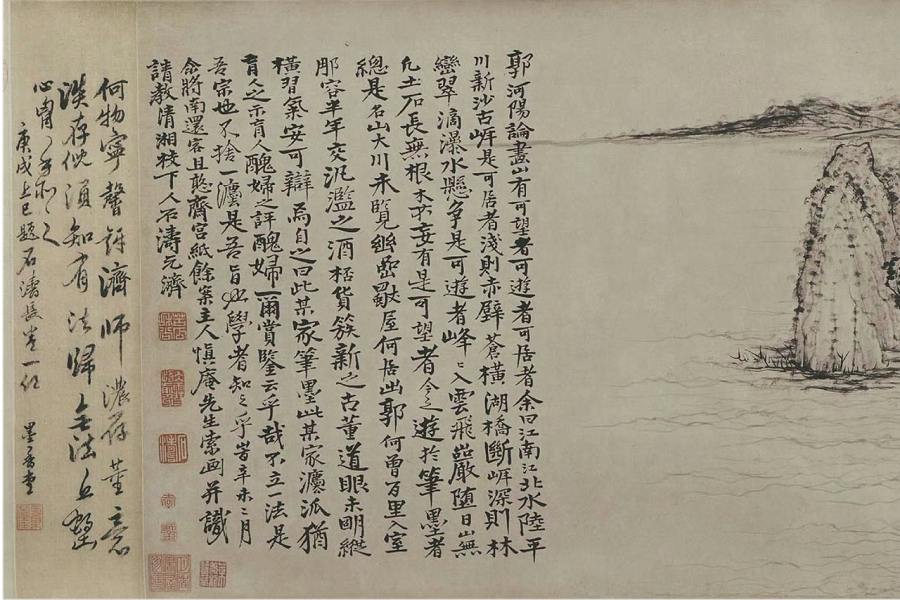 郭河陽論畫山有可望者可遊者可居者余曰江南江北水陸平
川新沙古岸是可居者淺則赤壁蒼橫湖橋斷岸深則林
巒翠滴瀑水懸爭是可遊者峰〻入雲飛巖墮日山無
凡土石長無根木不妄有是可望者今之遊於筆墨者
總是名山大川未覽幽巖獨屋何居出郭何曾百里入室
那容半年交汎濫之酒桮貨簇新之古董道眼未明縱
橫習氣安可辯焉自之曰此某家筆墨此某家灋派猶
盲人之示盲人醜婦之評醜婦爾賞鑒云乎哉不立一法是
吾宗也不捨一灋是吾旨也學者知之乎旹辛未二月
余將南還客且憨齋宮紙餘案主人慎庵先生索画并識
請教清湘枝下人石濤元濟
何物寧馨濟師濃存董意
淡存倪須知有法歸無法丘壑
心胸
庚戌上巳題石濤長卷一